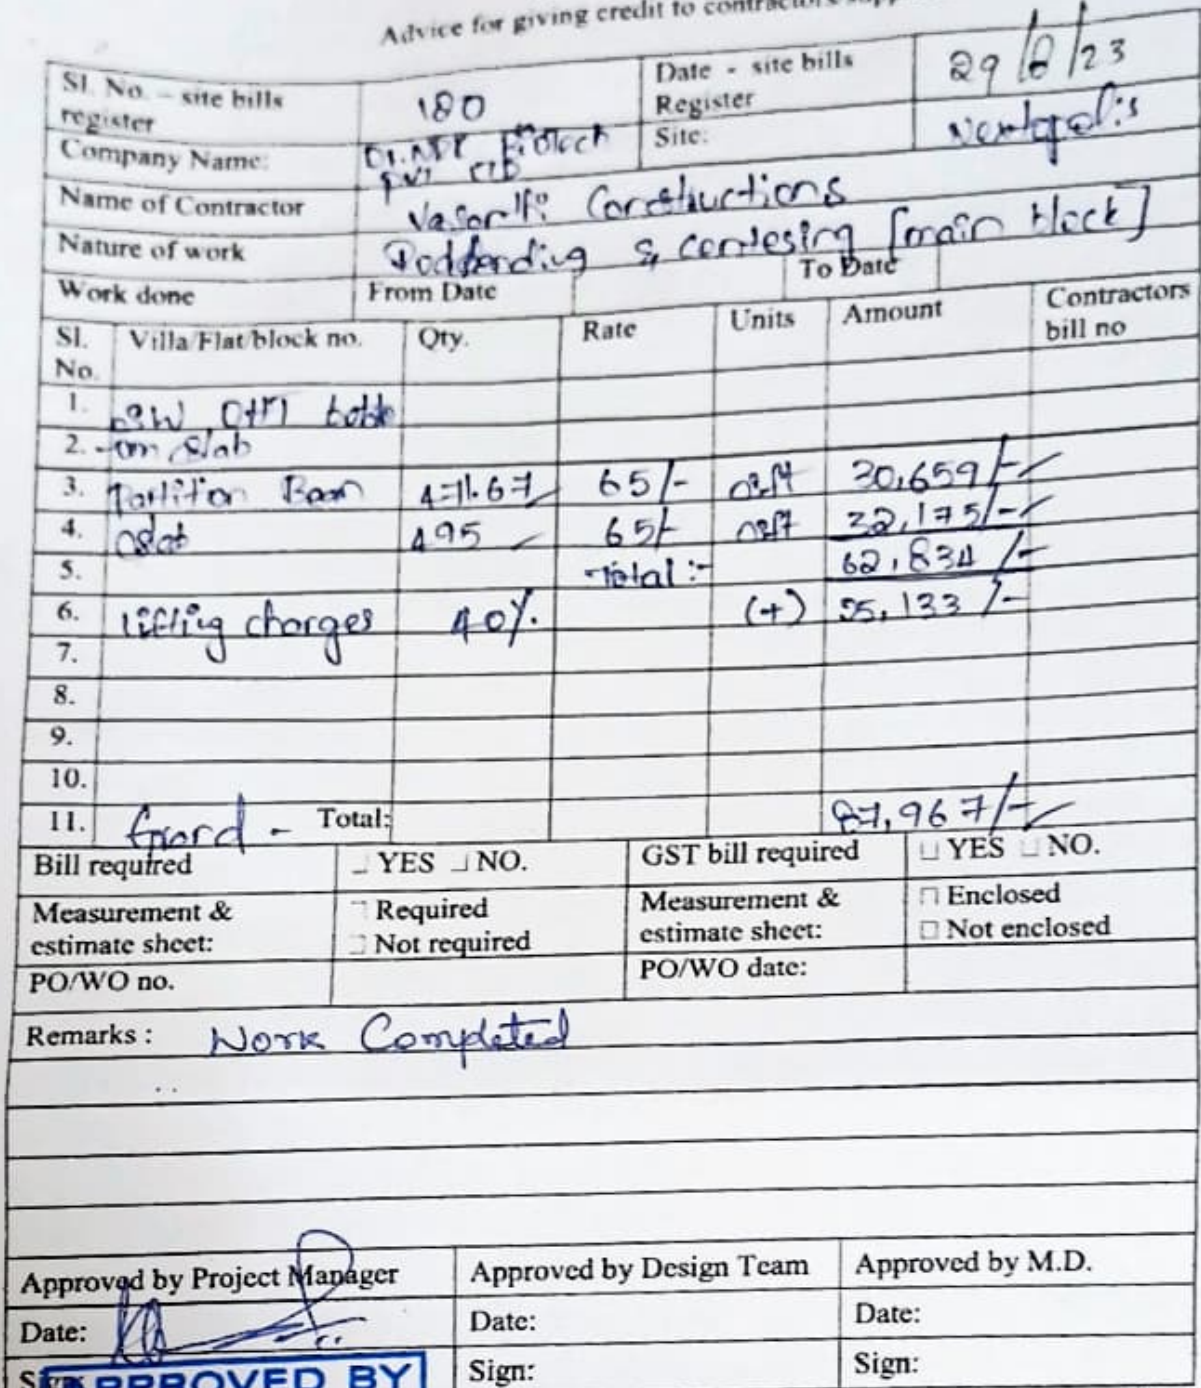 Advice for giving credit to contractors
Sl. No. – site bills register 180 Date - site bills Register 29/8/23
Company Name: Biotech Pvt Ltd Site: Neutopolis
Name of Contractor Constructions
Nature of work & [main block]
Work done From Date To Date
Sl. No. Villa/Flat/block no. Qty. Rate Units Amount Contractors bill no
1.
2. slab
3. Partition 471.67 65/- 30,659/-
4. 495 65/- 32,175/-
5. Total :- 62,834/-
6. lifting charges 40%. (+) 25,133/-
7.
8.
9.
10.
11. Grand - Total: 87,967/-
Bill required YES NO. GST bill required YES NO.
Measurement & estimate sheet: Required Not required Measurement & estimate sheet: Enclosed Not enclosed
PO/WO no. PO/WO date:
Remarks : Work Completed
Approved by Project Manager Approved by Design Team Approved by M.D.
Date: Date: Date:
Sign: Sign:
APPROVED BY